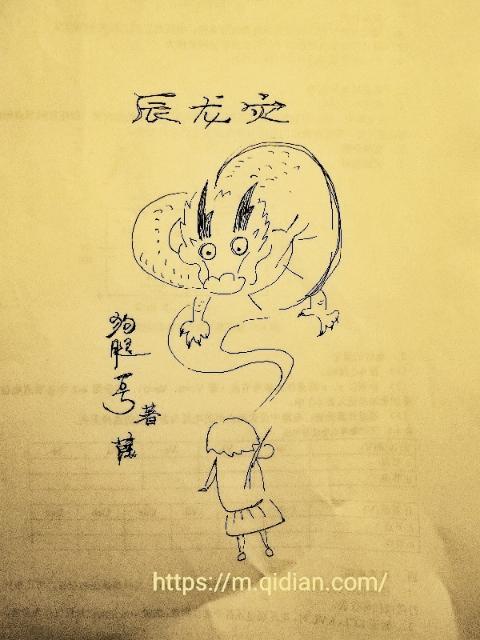 辰龙灾
狗腿一号著
https://m.qidian.com/